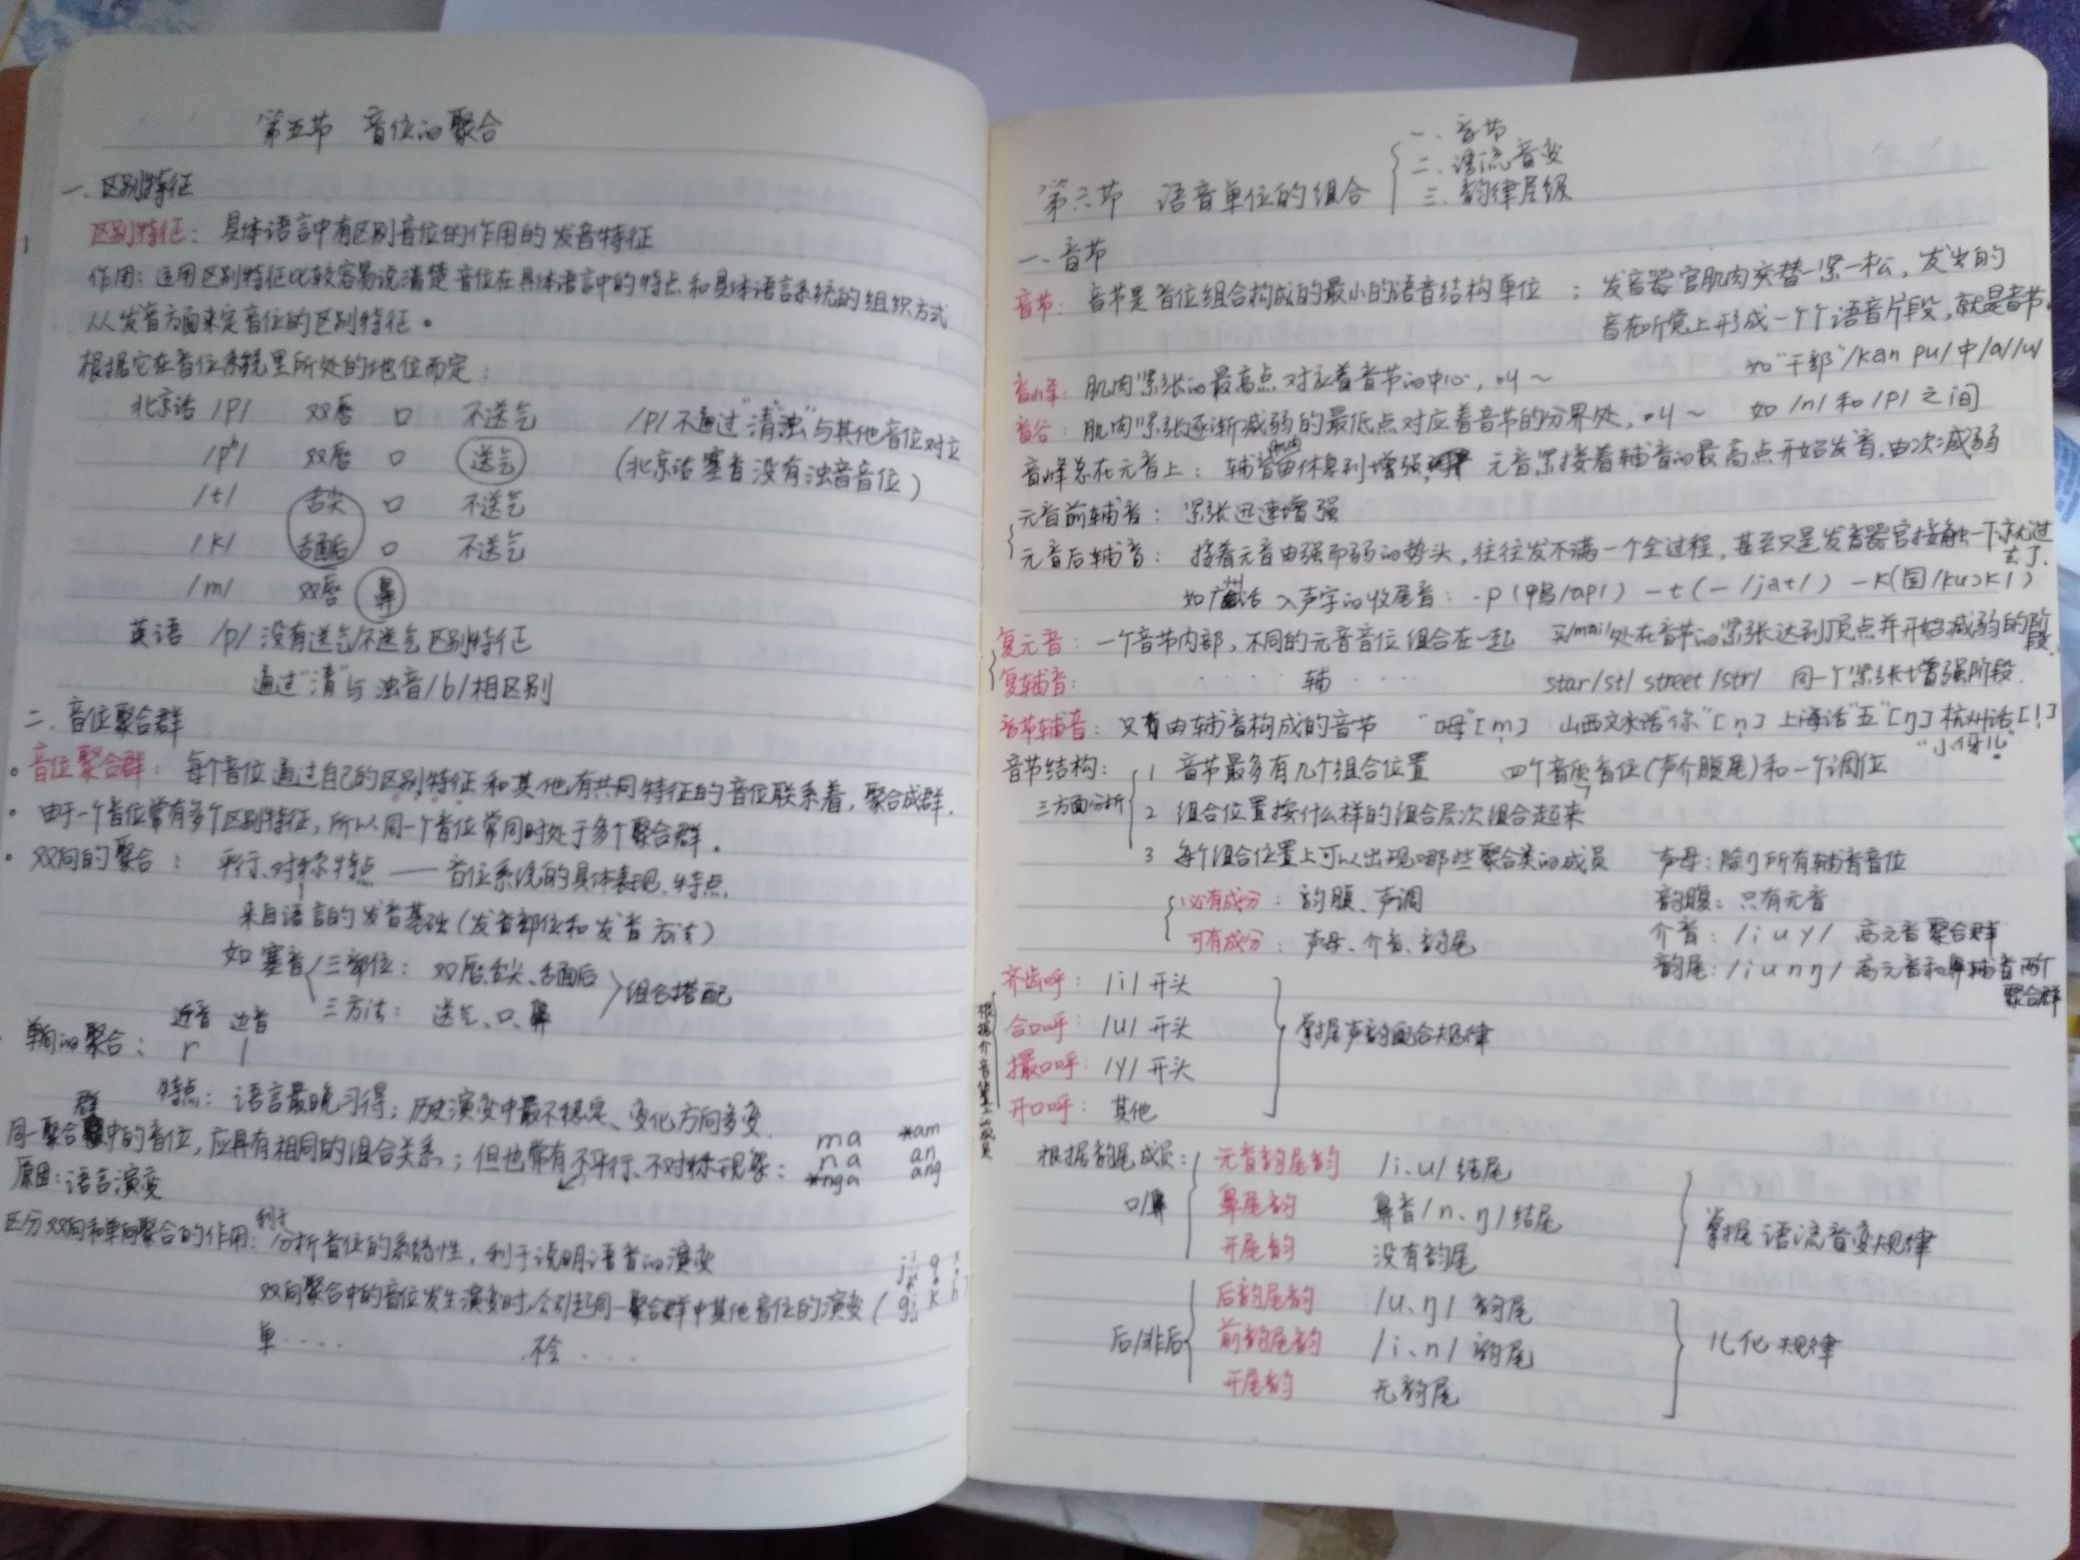 第五节 音位的聚合
一、区别特征
区别特征：具体语言中有区别音位的作用的发音特征
作用：运用区别特征比较容易说清楚音位在具体语言中的特点和具体语言系统的组织方式
从发音方面来定音位的区别特征。
根据它在音位系统里所处的地位而定：
北京话 /p/ 双唇 口 不送气 /p/不通过"清""浊"与其他音位对立
/pʰ/ 双唇 口 送气 (北京话塞音没有浊音音位)
/t/ 舌尖 口 不送气
/k/ 舌面后 口 不送气
/m/ 双唇 鼻
英语 /p/ 没有送气/不送气区别特征
通过"清"与浊音/b/相区别
二、音位聚合群
音位聚合群：每个音位通过自己的区别特征和其他有共同特征的音位联系着，聚合成群.
由于一个音位常有多个区别特征，所以同一个音位常同时处于多个聚合群。
双向的聚合：平行、对称特点——音位系统的具体表现、特点.
来自语言的发音基础(发音部位和发音方法)
如塞音 三部位：双唇、舌尖、舌面后 组合搭配
三方法：送气、口、鼻
近音 边音
单向的聚合：r l
特点：语言最晚习得；历史演变中最不稳定、变化方向多变.
同一聚合群中的音位，应具有相同的组合关系；但也常有不平行、不对称现象：ma *am
na an
*nga ang
原因：语言演变
区分双向和单向聚合的作用：利于分析音位的系统性，利于说明语音的演变
j q x
双向聚合中的音位发生演变时，会引起同一聚合群中其他音位的演变 ( g k h )
单···· 不会···
第六节 语音单位的组合
一、音节
二、语流音变
三、韵律层级
一、音节
音节：音节是音位组合构成的最小的语音结构单位；发音器官肌肉交替一紧一松，发出的
音在听觉上形成一个个语音片段，就是音节。
音峰：肌肉紧张的最高点对应着音节的中心，叫～ 如"干部"/kan pu/中/a//u/
音谷：肌肉紧张逐渐减弱的最低点对应着音节的分界处，叫～ 如/n/和/p/之间
音峰总在元音上：辅音肌肉由休息到增强， 元音紧接着辅音的最高点开始发音，由次减弱
元音前辅音：紧张迅速增强
元音后辅音：接着元音由强而弱的势头，往往发不满一个全过程，甚至只是发音器官接触一下就过去了.
如广州话入声字的收尾音：-p(鸭/ap/) -t(一/jat/) -k(国/kuɔk/)
复元音：一个音节内部，不同的元音音位组合在一起 买/mai/处在音节的紧张达到顶点并开始减弱的阶段.
复辅音：····辅···· star/st/ street/str/ 同一个紧张增强阶段.
音节辅音：只有由辅音构成的音节 "呣"[m̩] 山西文水话"你"[n̩] 上海话"五"[ŋ̍] 杭州话[l̩]
"小伢儿"
音节结构：1 音节最多有几个组合位置 四个音质音位(声介腹尾)和一个调位
三方面分析 2 组合位置按什么样的组合层次组合起来
3 每个组合位置上可以出现哪些聚合类的成员 声母：除ŋ所有辅音音位
必有成分：韵腹、声调 韵腹：只有元音
可有成分：声母、介音、韵尾 介音：/i u y/ 高元音聚合群
韵尾：/i u n ŋ/ 高元音和鼻辅音两个聚合群
根据介音位置上的成员
齐齿呼：/i/开头
合口呼：/u/开头 掌握声韵配合规律
撮口呼：/y/开头
开口呼：其他
根据韵尾成员：元音韵尾韵 /i、u/结尾
口/鼻 鼻尾韵 鼻音/n、ŋ/结尾 掌握语流音变规律
开尾韵 没有韵尾
后韵尾韵 /u、ŋ/韵尾
后/非后 前韵尾韵 /i、n/韵尾 儿化规律
开尾韵 无韵尾